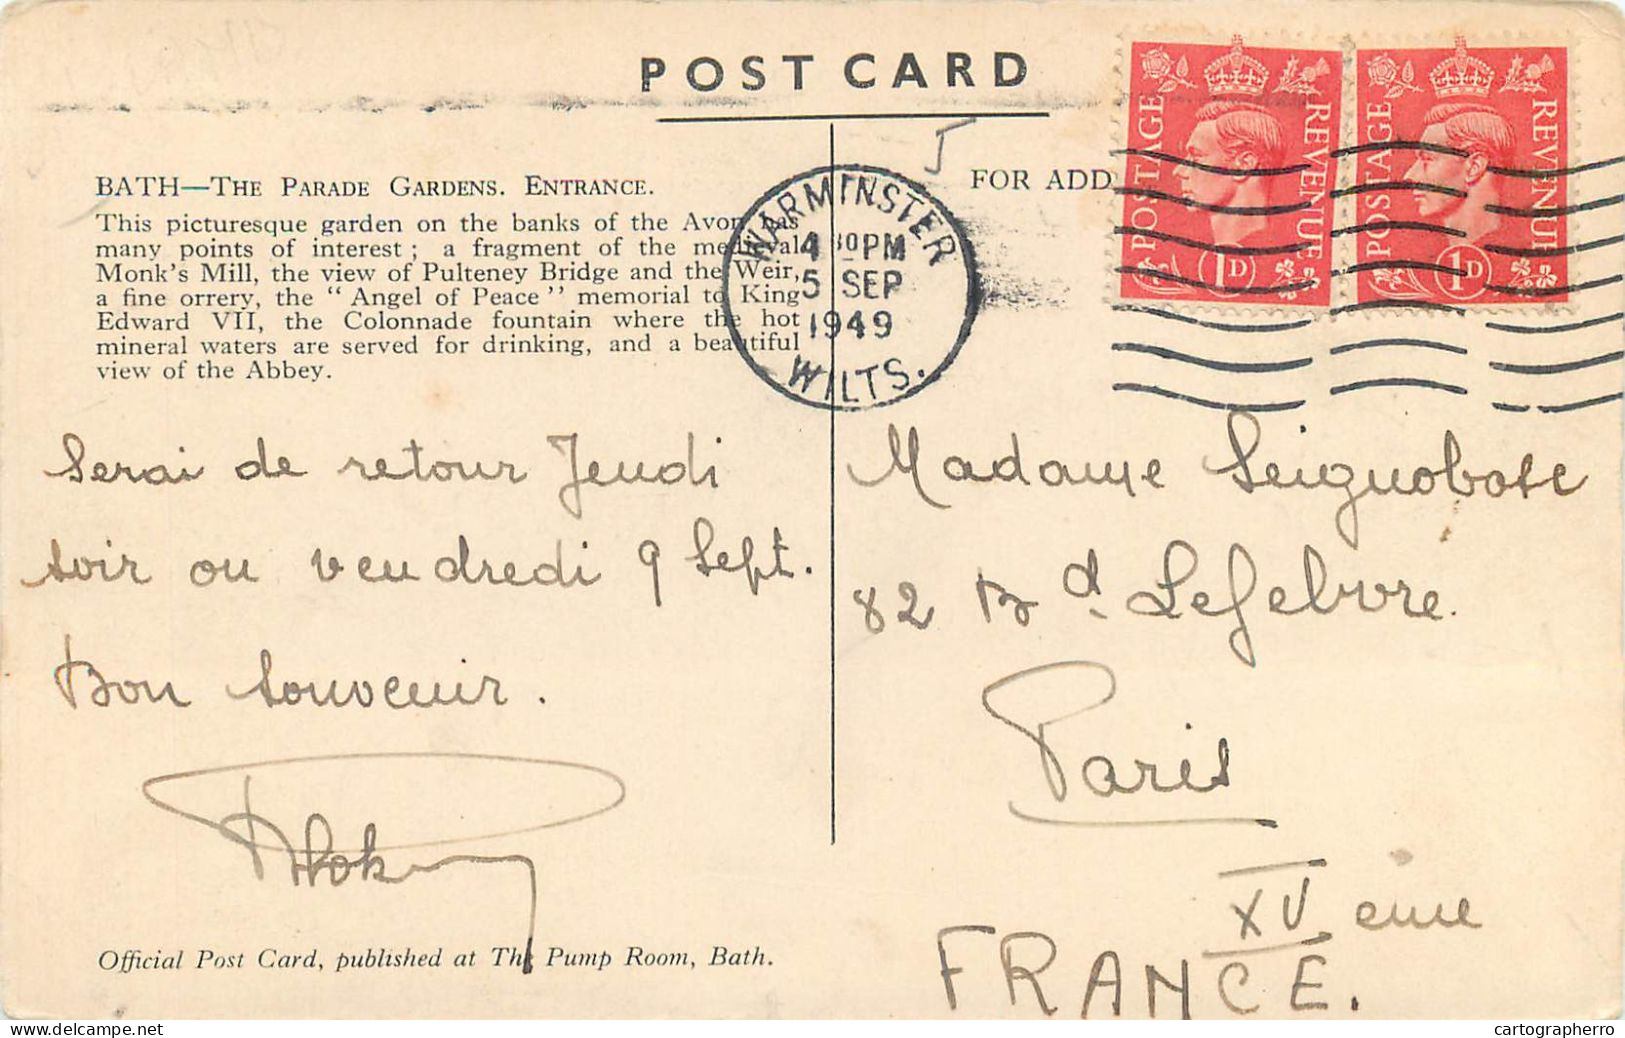 POST CARD
BATH—THE PARADE GARDENS. ENTRANCE.
This picturesque garden on the banks of the Avon has
many points of interest ; a fragment of the medieval
Monk's Mill, the view of Pulteney Bridge and the Weir,
a fine orrery, the “ Angel of Peace ” memorial to King
Edward VII, the Colonnade fountain where the hot
mineral waters are served for drinking, and a beautiful
view of the Abbey.
Serai de retour Jeudi
soir ou vendredi 9 Sept.
Bon souvenir.
Official Post Card, published at The Pump Room, Bath.
WARMINSTER
4 30 PM
5 SEP
1949
WILTS.
FOR ADD
POSTAGE REVENUE
1D
POSTAGE REVENUE
1D
Madame Seignobosc
82 Bd. Lefebvre.
Paris
XV eme
FRANCE.
cartographerro